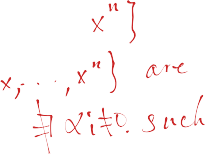 xⁿ}
x, ..., xⁿ} are
∄ αᵢ ≠ 0. such